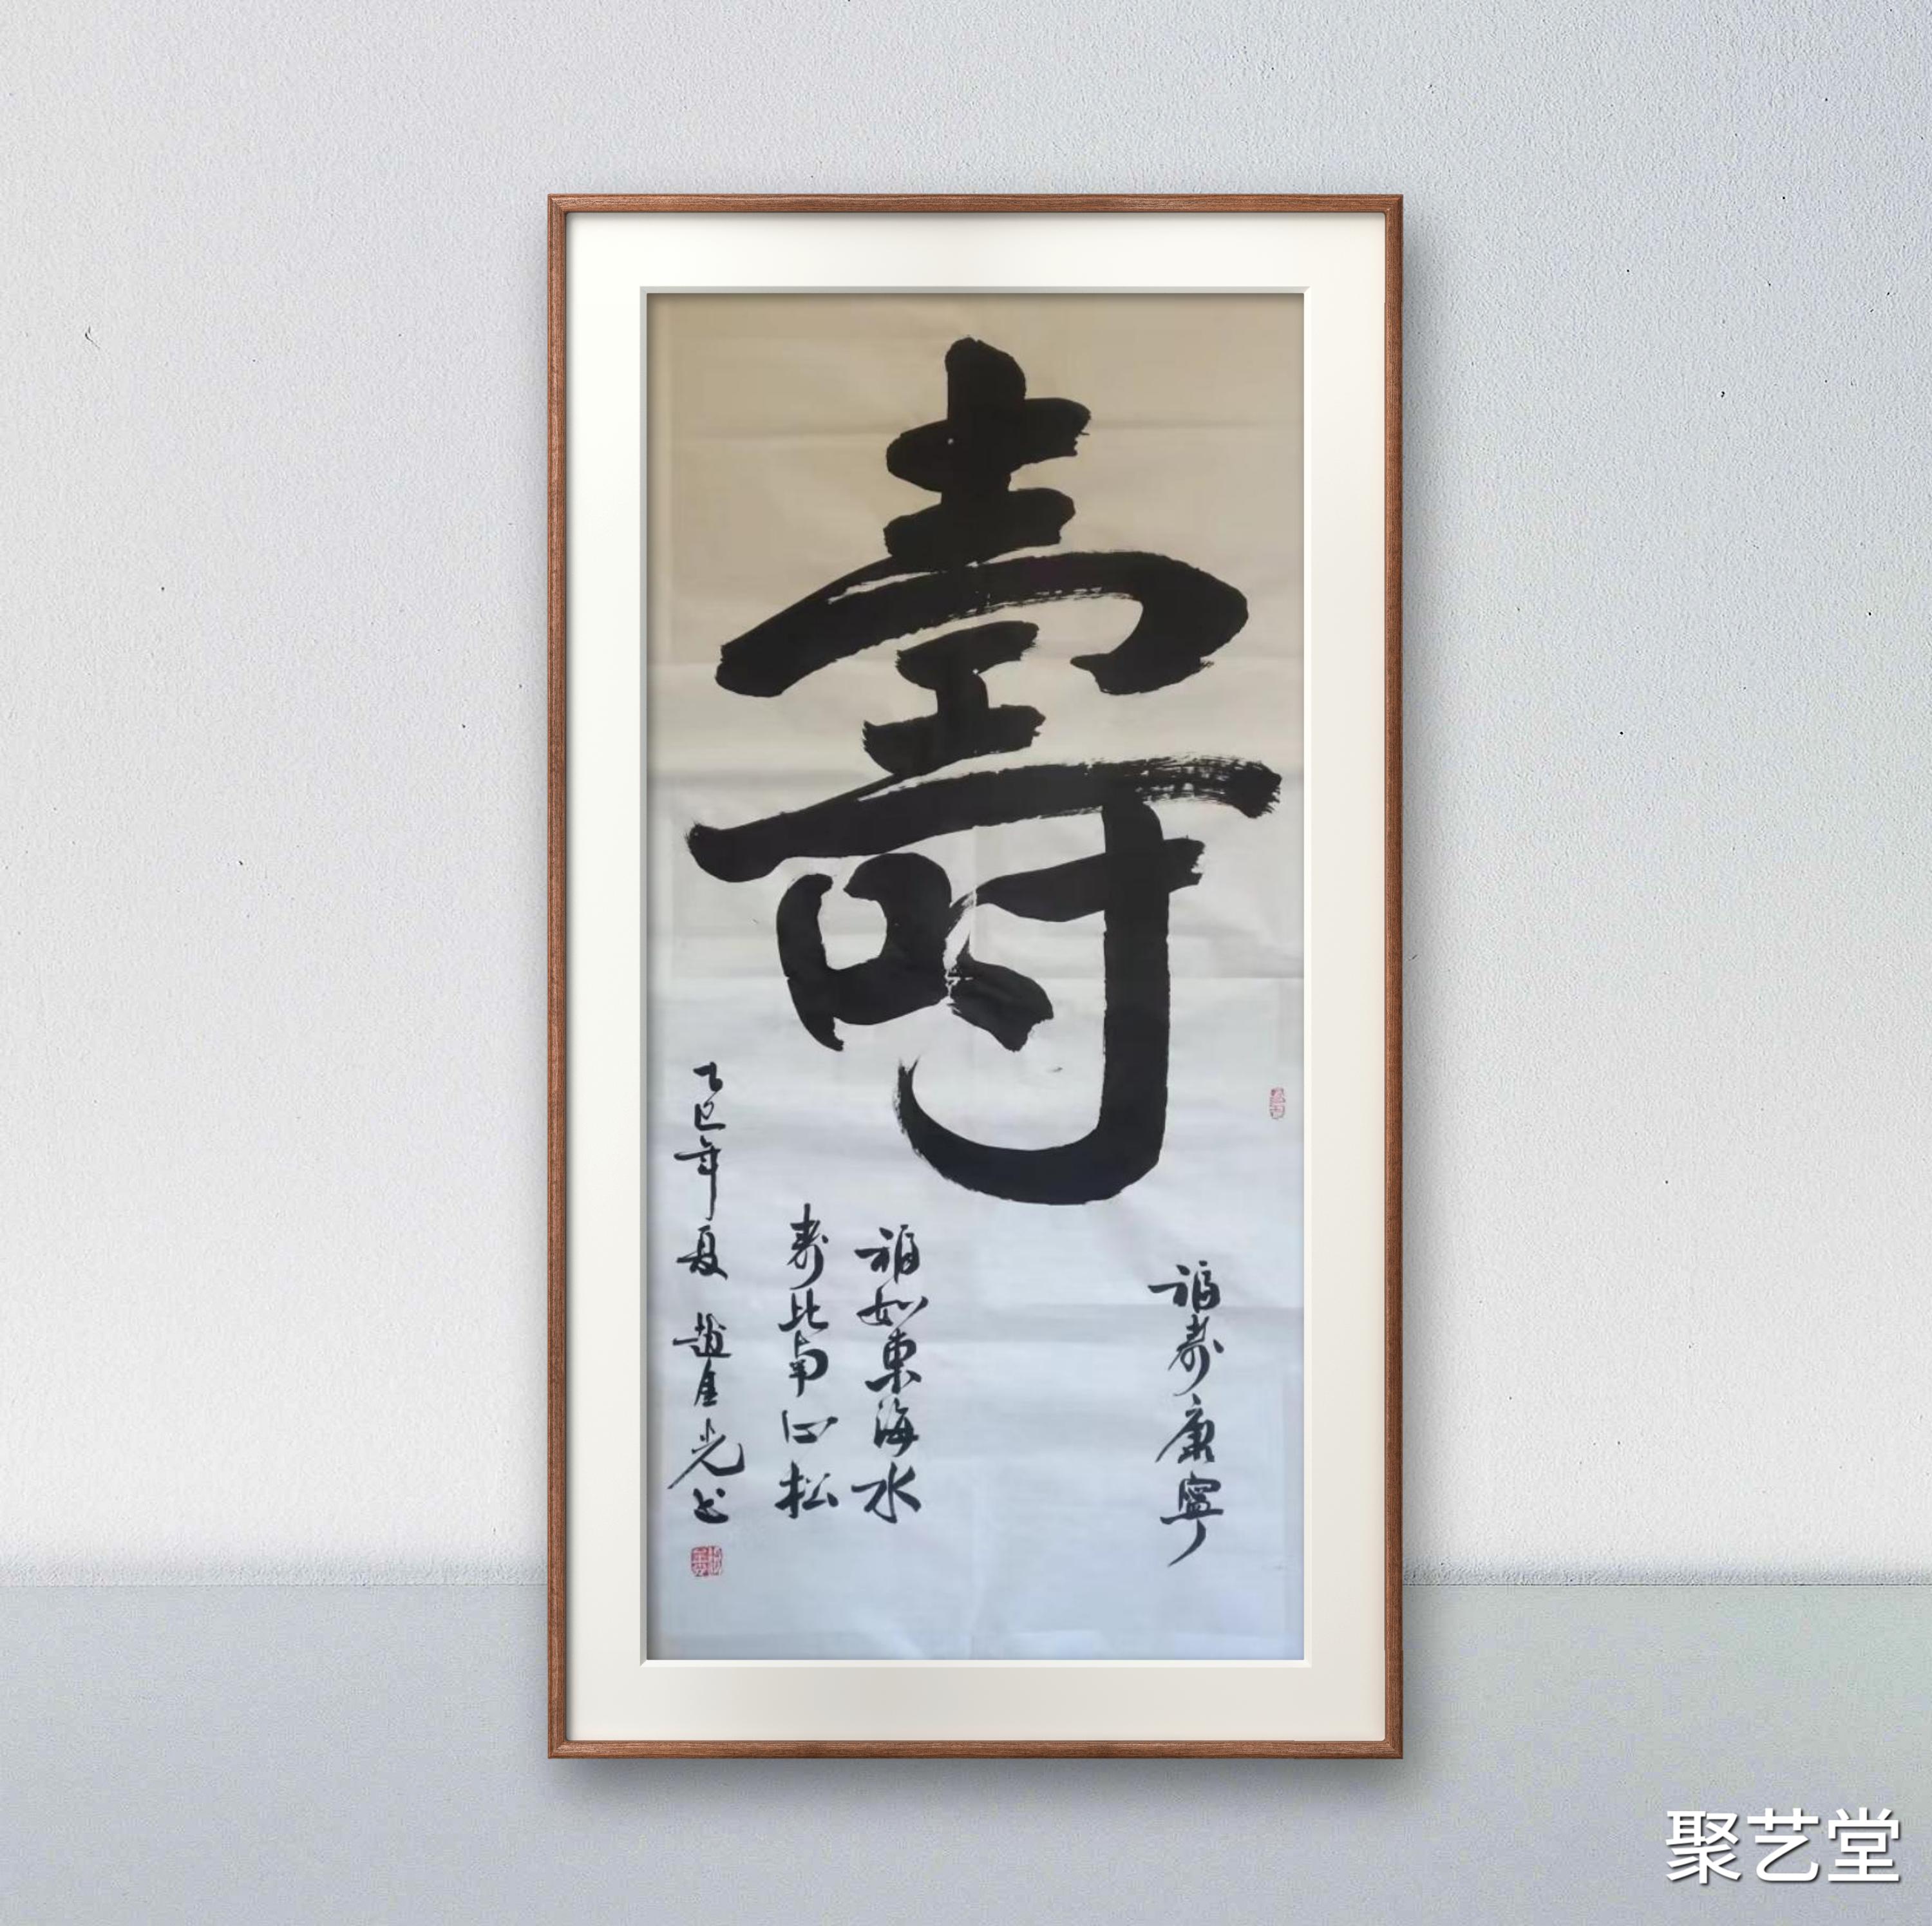 壽
福壽康寧
福如東海水
寿比南山松
乙巳年夏 趙金光书
聚艺堂